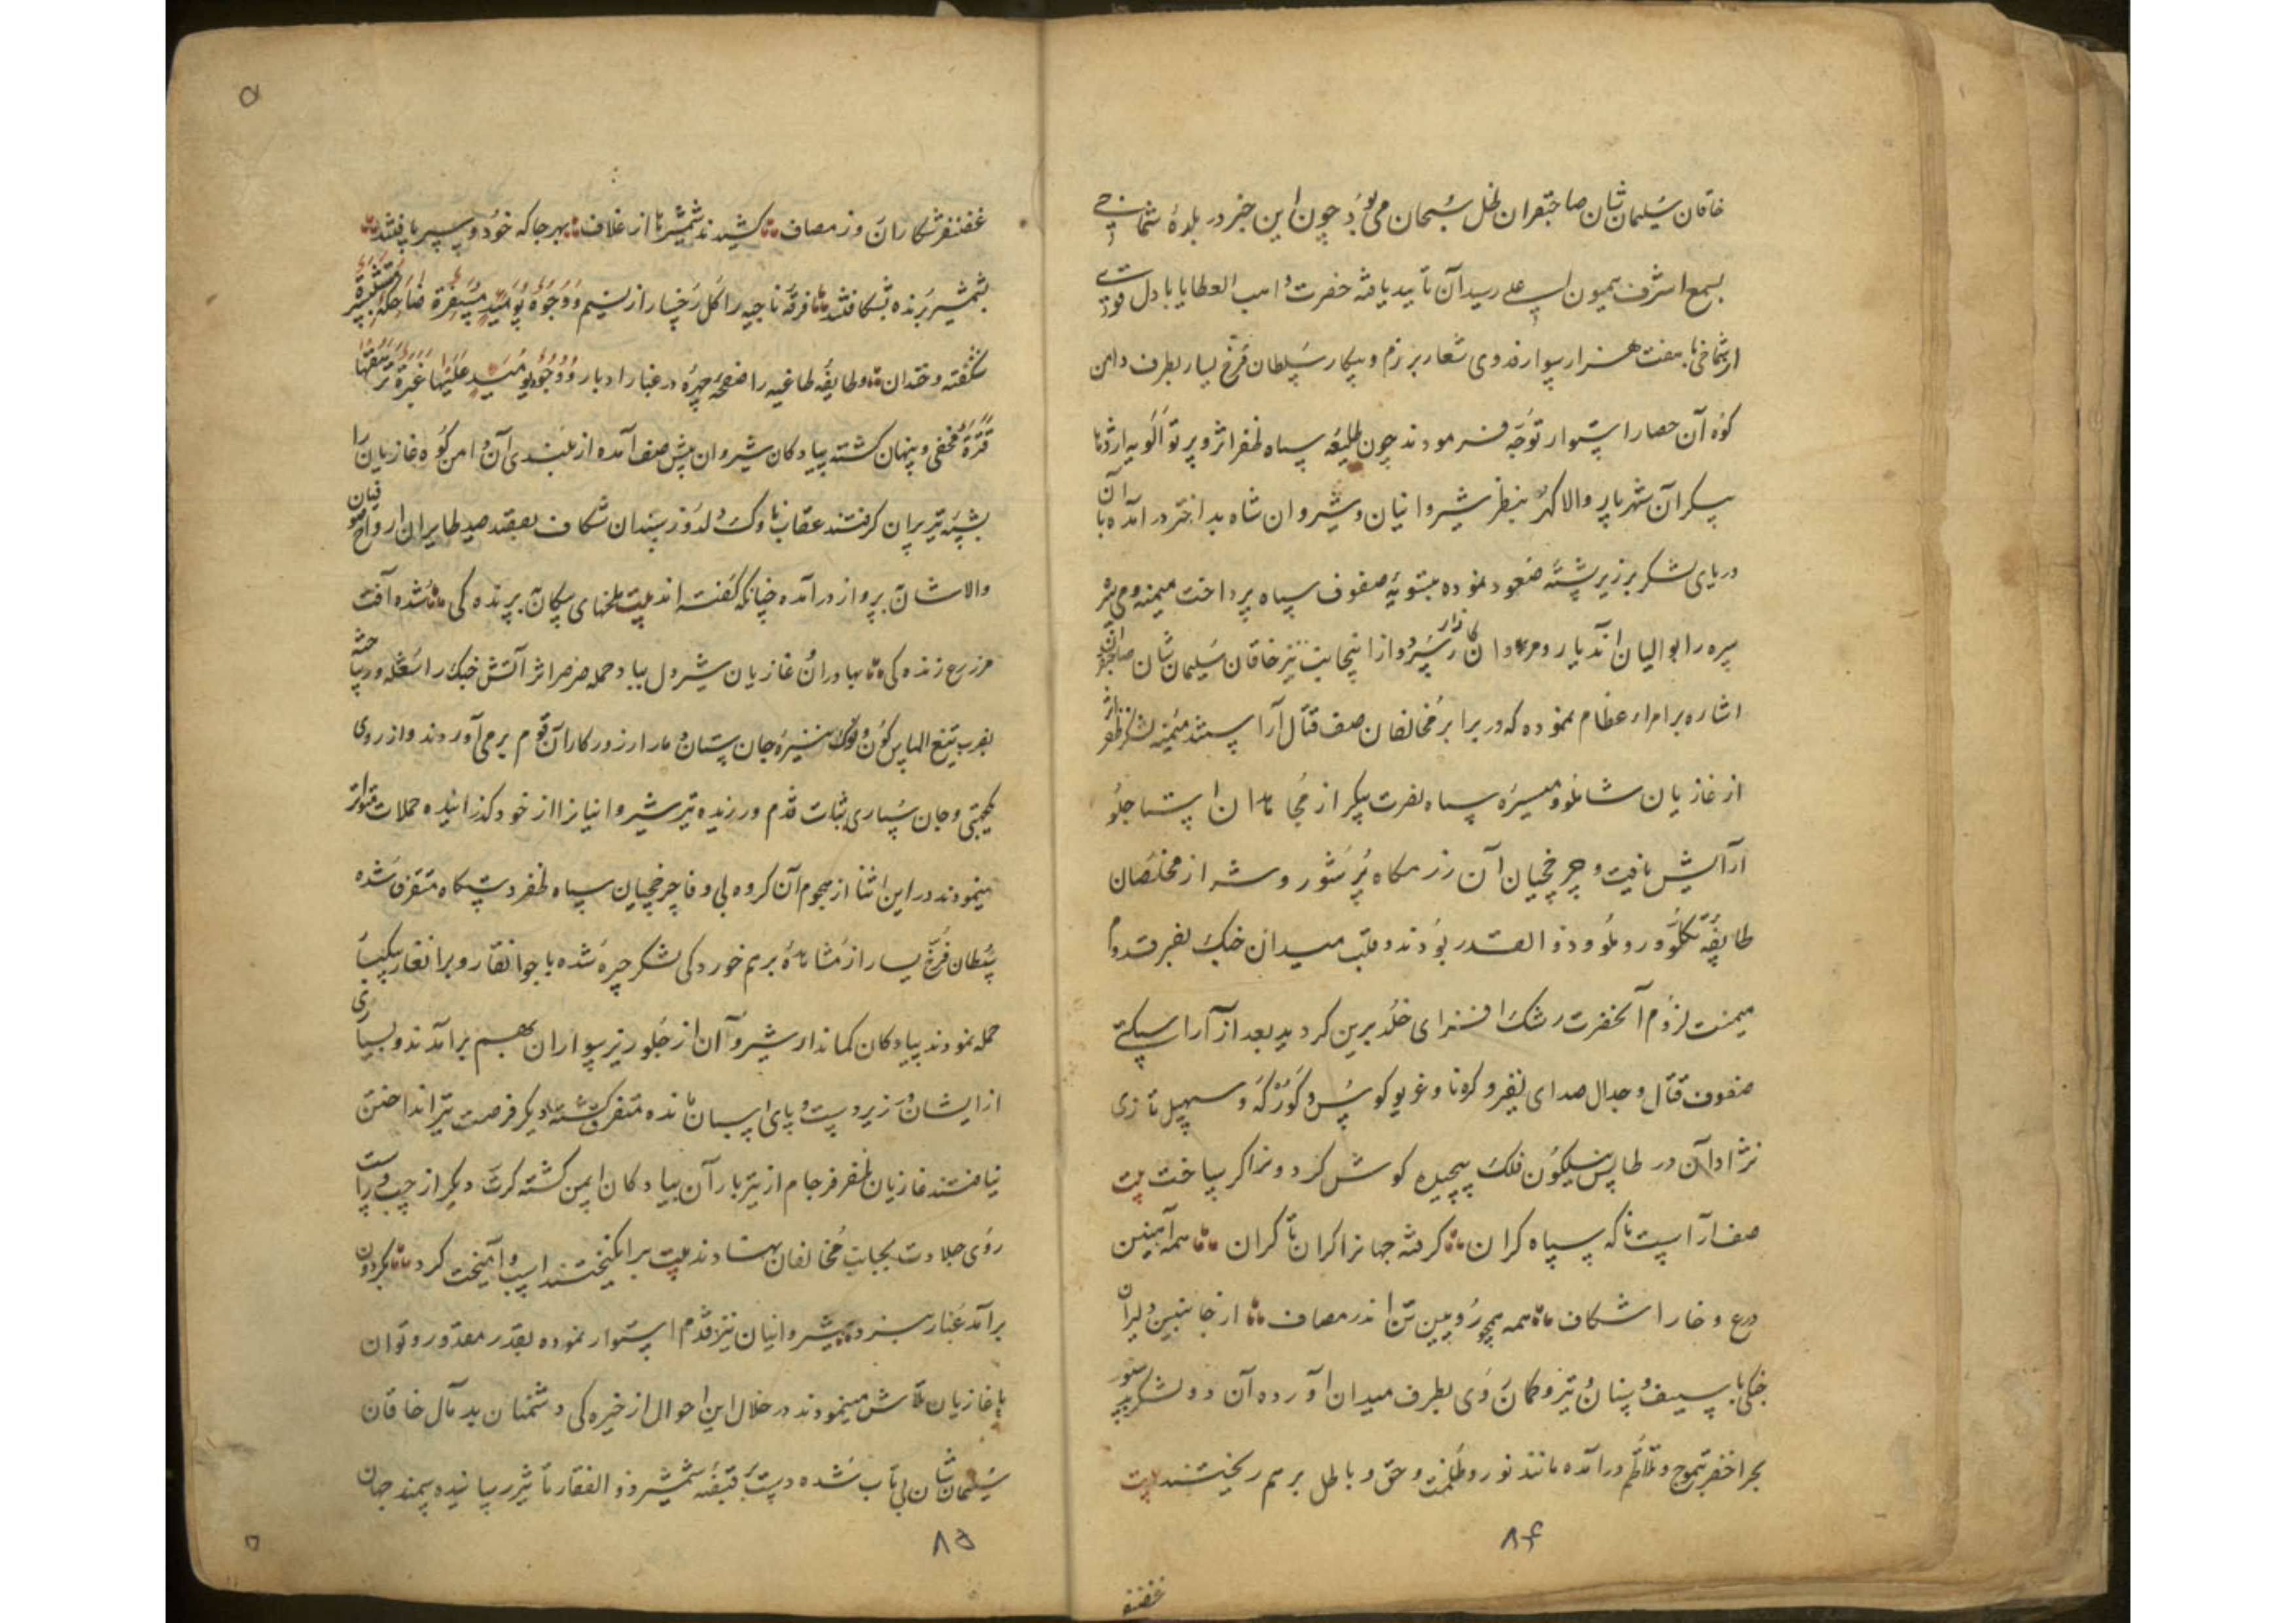 خاقان سلیمان شان صاحبقران ظل سبحان می بود چون این خبر در بلدهٔ شماخی
بسمع اشرف همیون اعلی رسید آن تایید یافته حضرت واهب العطایا با دل قوی
از شماخی با هفت هزار سوار فدوی شعار برزم و پیکار سلطان فرخ یسار بطرف دامن
کوه آن حصار استوار توجه فرمودند چون طلیعه سپاه ظفر اثر و پرتو
پیکر آن شهریار والا گهر بنظر شیروانیان و شیروان شاه بد اختر در آمد با آن
دریای لشکر بر زبر پشته صعود نموده بتسویه صفوف سپاه پرداخت میمنه و میسره
سیره را بوالیان آن دیار و مردان کارزار سپرد و از اینجانب نیز خاقان سلیمان شان صاحبقران
اشاره بامراء عظام نموده که در برابر مخالفان صف قتال آراستند میمنه لشکر ظفر اثر
از غازیان شاملو و میسره سپاه نصرت پیکر از مجاهدان استاجلو
آرایش یافت و چرخچیان آن رزمگاه پر شور و شر از مخلصان
طایفه تکلو و روملو و ذوالقدر بودند و قلب میدان جنگ بفر قدوم
میمنت لزوم آنحضرت رشک افزای خلد برین گردید بعد از آراستگی
صفوف قتال و جدال صدای نفیر و کرنا و غریو کوس و کورکه و سهیل تازی
نژادان در طاس نیلگون فلک پیچیده گوش گردون را کر ساخت بیت
صف آراست تا که سپاه گران گرفته جهانرا کران تا کران همه آهنین
درع و خارا شکاف همه همچو رویین تن اندر مصاف از جانبین دلیران
جنگی با سیف و سنان و تیر و کمان روی بطرف میدان آورده آن دو لشکر
بحر اخضر بتموج و تلاطم درآمده مانند نور و ظلمت و حق و باطل بر هم ریختند بیت
۸۴
غضنفر
۵
غضنفر شکاران روز مصاف کشیدند شمشیرها از غلاف بهر جا که خود و سپر یافتند
بشمشیر برنده بشکافتند فرقه ناجیه را گل رخسار از نسیم وُجُوهٌ یَوْمَئِذٍ مُسْفِرَةٌ ضَاحِكَةٌ مُسْتَبْشِرَةٌ
شکفته و خندان و طایفه طاغیه را صفحه چهره در غبار ادبار وَوُجُوهٌ یَوْمَئِذٍ عَلَیْهَا غَبَرَةٌ تَرْهَقُهَا
قَتَرَةٌ مخفی و پنهان گشته پیادکان شیروان پیش صف آمده از بلندی آن دامن کوه غازیان را
بشیبه تیر پران گرفتند عقاب ناوک دلدوز سندان شکاف بقصد صید طایران ارواح صوفیان
والاشان بپرواز درآمده چنانکه گفته اند بیت ملخهای پیکان پرندگی شده آفت
مزرع زندگی بهادران و غازیان شیردل بباد حمله صرصر اثر آتش جنگ را مشتعله ور ساخته
بضرب تیغ الماس گون و نوک نیزه جان ستان دمار از روزگار آن قوم بر می آوردند و از روی
یکجهتی و جان سپاری ثبات قدم ورزیده تیر شیروانیانرا از خود گذرانیده حملات متواتر
مینمودند در این اثنا از هجوم آن گروه بی وفا چرخچیان سپاه ظفر دستگاه متفرق شده
سلطان فرخ یسار از مشاهدهٔ برهم خوردگی لشکر چیره شده با جوانغار و برانغار یکبار
حمله نمودند پیادکان کماندار شیروان از جلو ریز سواران بهم برآمدند و بسیاری
از ایشان در زیر دست و پای اسبان مانده متفرق گشته دیگر فرصت تیر انداختن
نیافتند غازیان ظفر فرجام از تیر باران پیادکان ایمن گشته کرت دیگر از چپ و راست
روی جلادت بجانب مخالفان نهادند بیت برانگیختند اسب و آمیخت گرد بگردون
برآمد غبار نبرد شیروانیان نیز قدم استوار نموده بقدر مقدور و توان
با غازیان تلاش مینمودند در خلال این احوال از خیره گی دشمنان بد مآل خاقان
سلیمان شان بی تاب شده دست بقبضه شمشیر ذوالفقار تاثیر رسانیده سمند جهان
۸۵